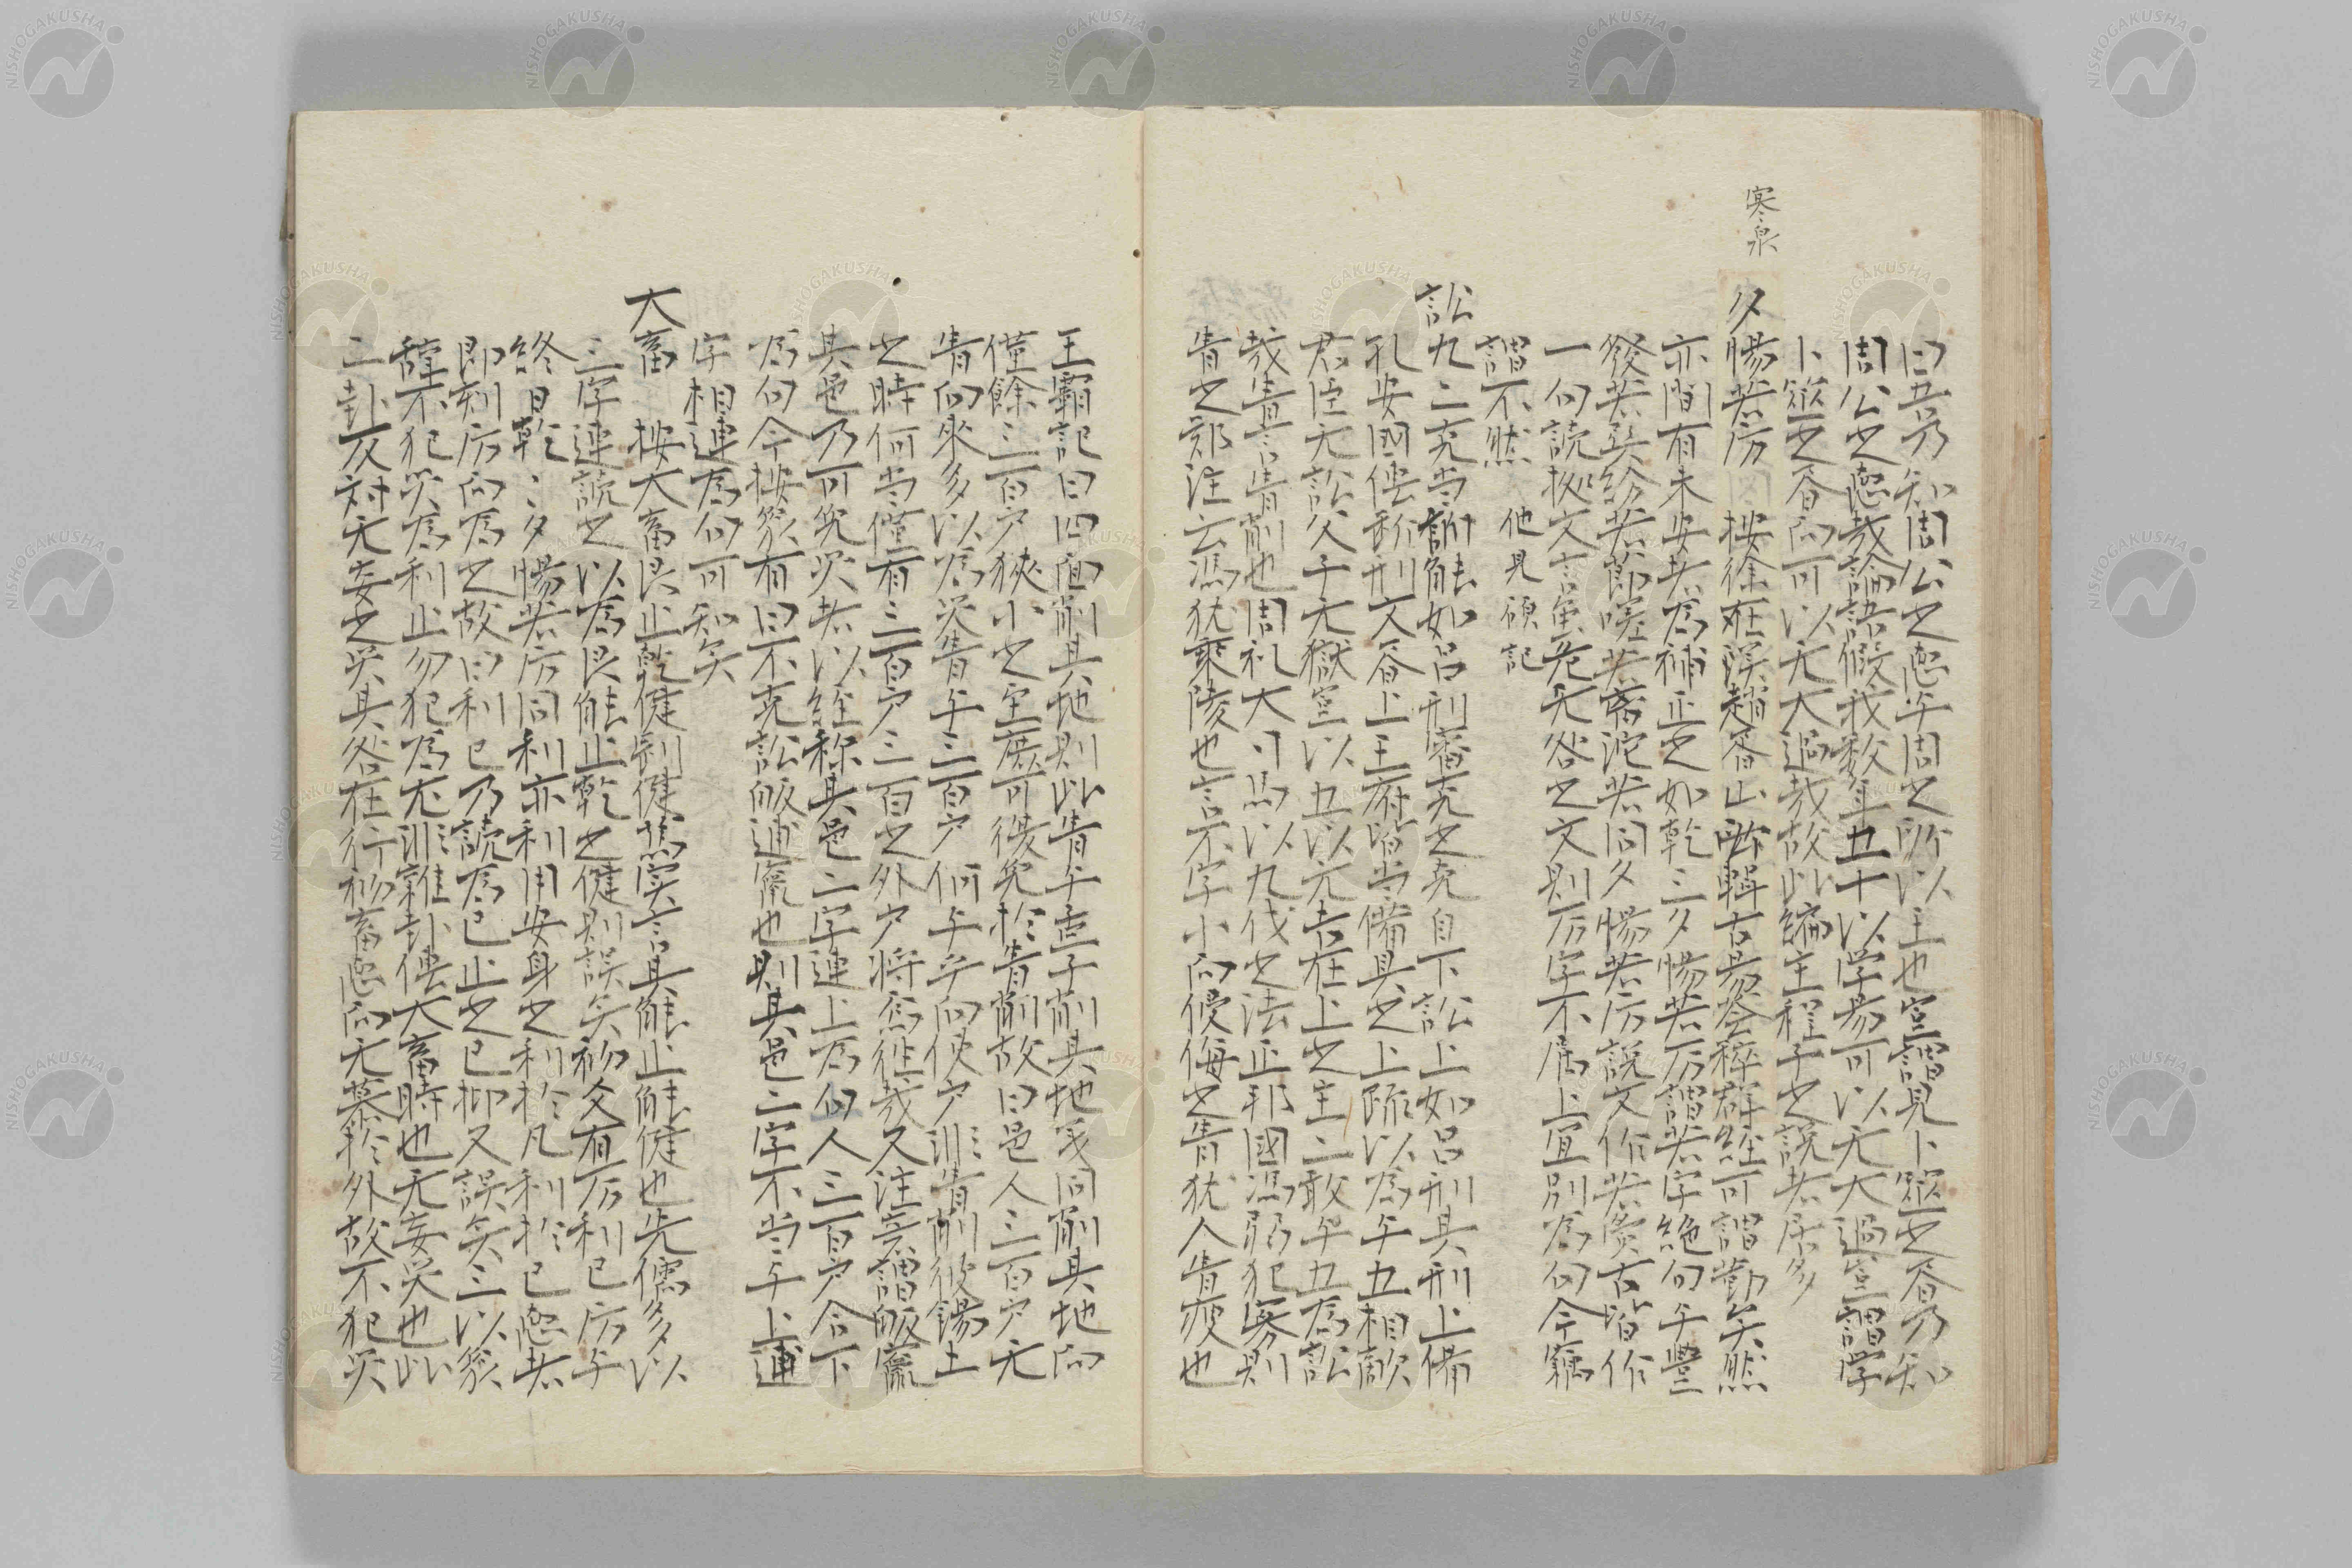 寒泉
曰吾乃知周公之德与周之所以王也豈謂見卜筮之書乃知
周公之德哉論語假我数年五十以学易可以无大過豈謂学
卜筮之書而可以无大過哉故此編主程子之説者居多
夕惕若厉 按徐在漢趙書山所輯古易荟稡群経可謂勤矣然
亦間有未安者為補正之如乾三夕惕若厉謂若字絶句与豐
發若巽紛若節嗟若离沱若同夕惕若厉説文作若夤古皆作
一句読拠文言虽危无咎之文則厉字不属上宜別為句今竊
謂不然 他見碩記
訟九二克当訓能如呂刑審克之克自下訟上如呂刑具刑上備
孔安國傳称刑文書上王府皆当備具之上疏以為与五相敵
君臣无訟父子无獄豈以五以元吉在上之主二敢与五為訟
哉眚言眚削也周礼大司馬以九伐之法正邦國馮弱犯寡則
眚之郑注云馮犹乘陵也言不字小而侵侮之眚犹人眚瘦也
王霸記曰四面削其地則此眚与孟子削其地之同削其地而
僅餘三百户狭小之至庶可後免於眚削故曰邑人三百户无
眚向来多以為災眚与三百户何与乎向使户訓眚削彼錫土
之時何当僅有三百户三百之外户将焉往哉又注意謂皈竄
其邑乃可免災者以経称其邑二字連上為句人三百户合下
為句今按象有曰不克訟皈逋竄也則其邑二字不当与上逋
字相連為句可知矣
大畜 按大畜艮止乾健剛健篤実言其能止能健也先儒多以
三字連読之以為艮能止乾之健則誤矣初爻有厉利已厉与
終日乾〻夕惕若厉同利亦利用安身之利於凡利於已德者
即利厉而為之故曰利已乃読為已止之已抑又誤矣三以象
辞不犯災為利止勿犯為尤訓雜卦傳大畜時也无妄災也此
二卦反対无妄之災其咎在行初畜德而无慕於外故不犯災